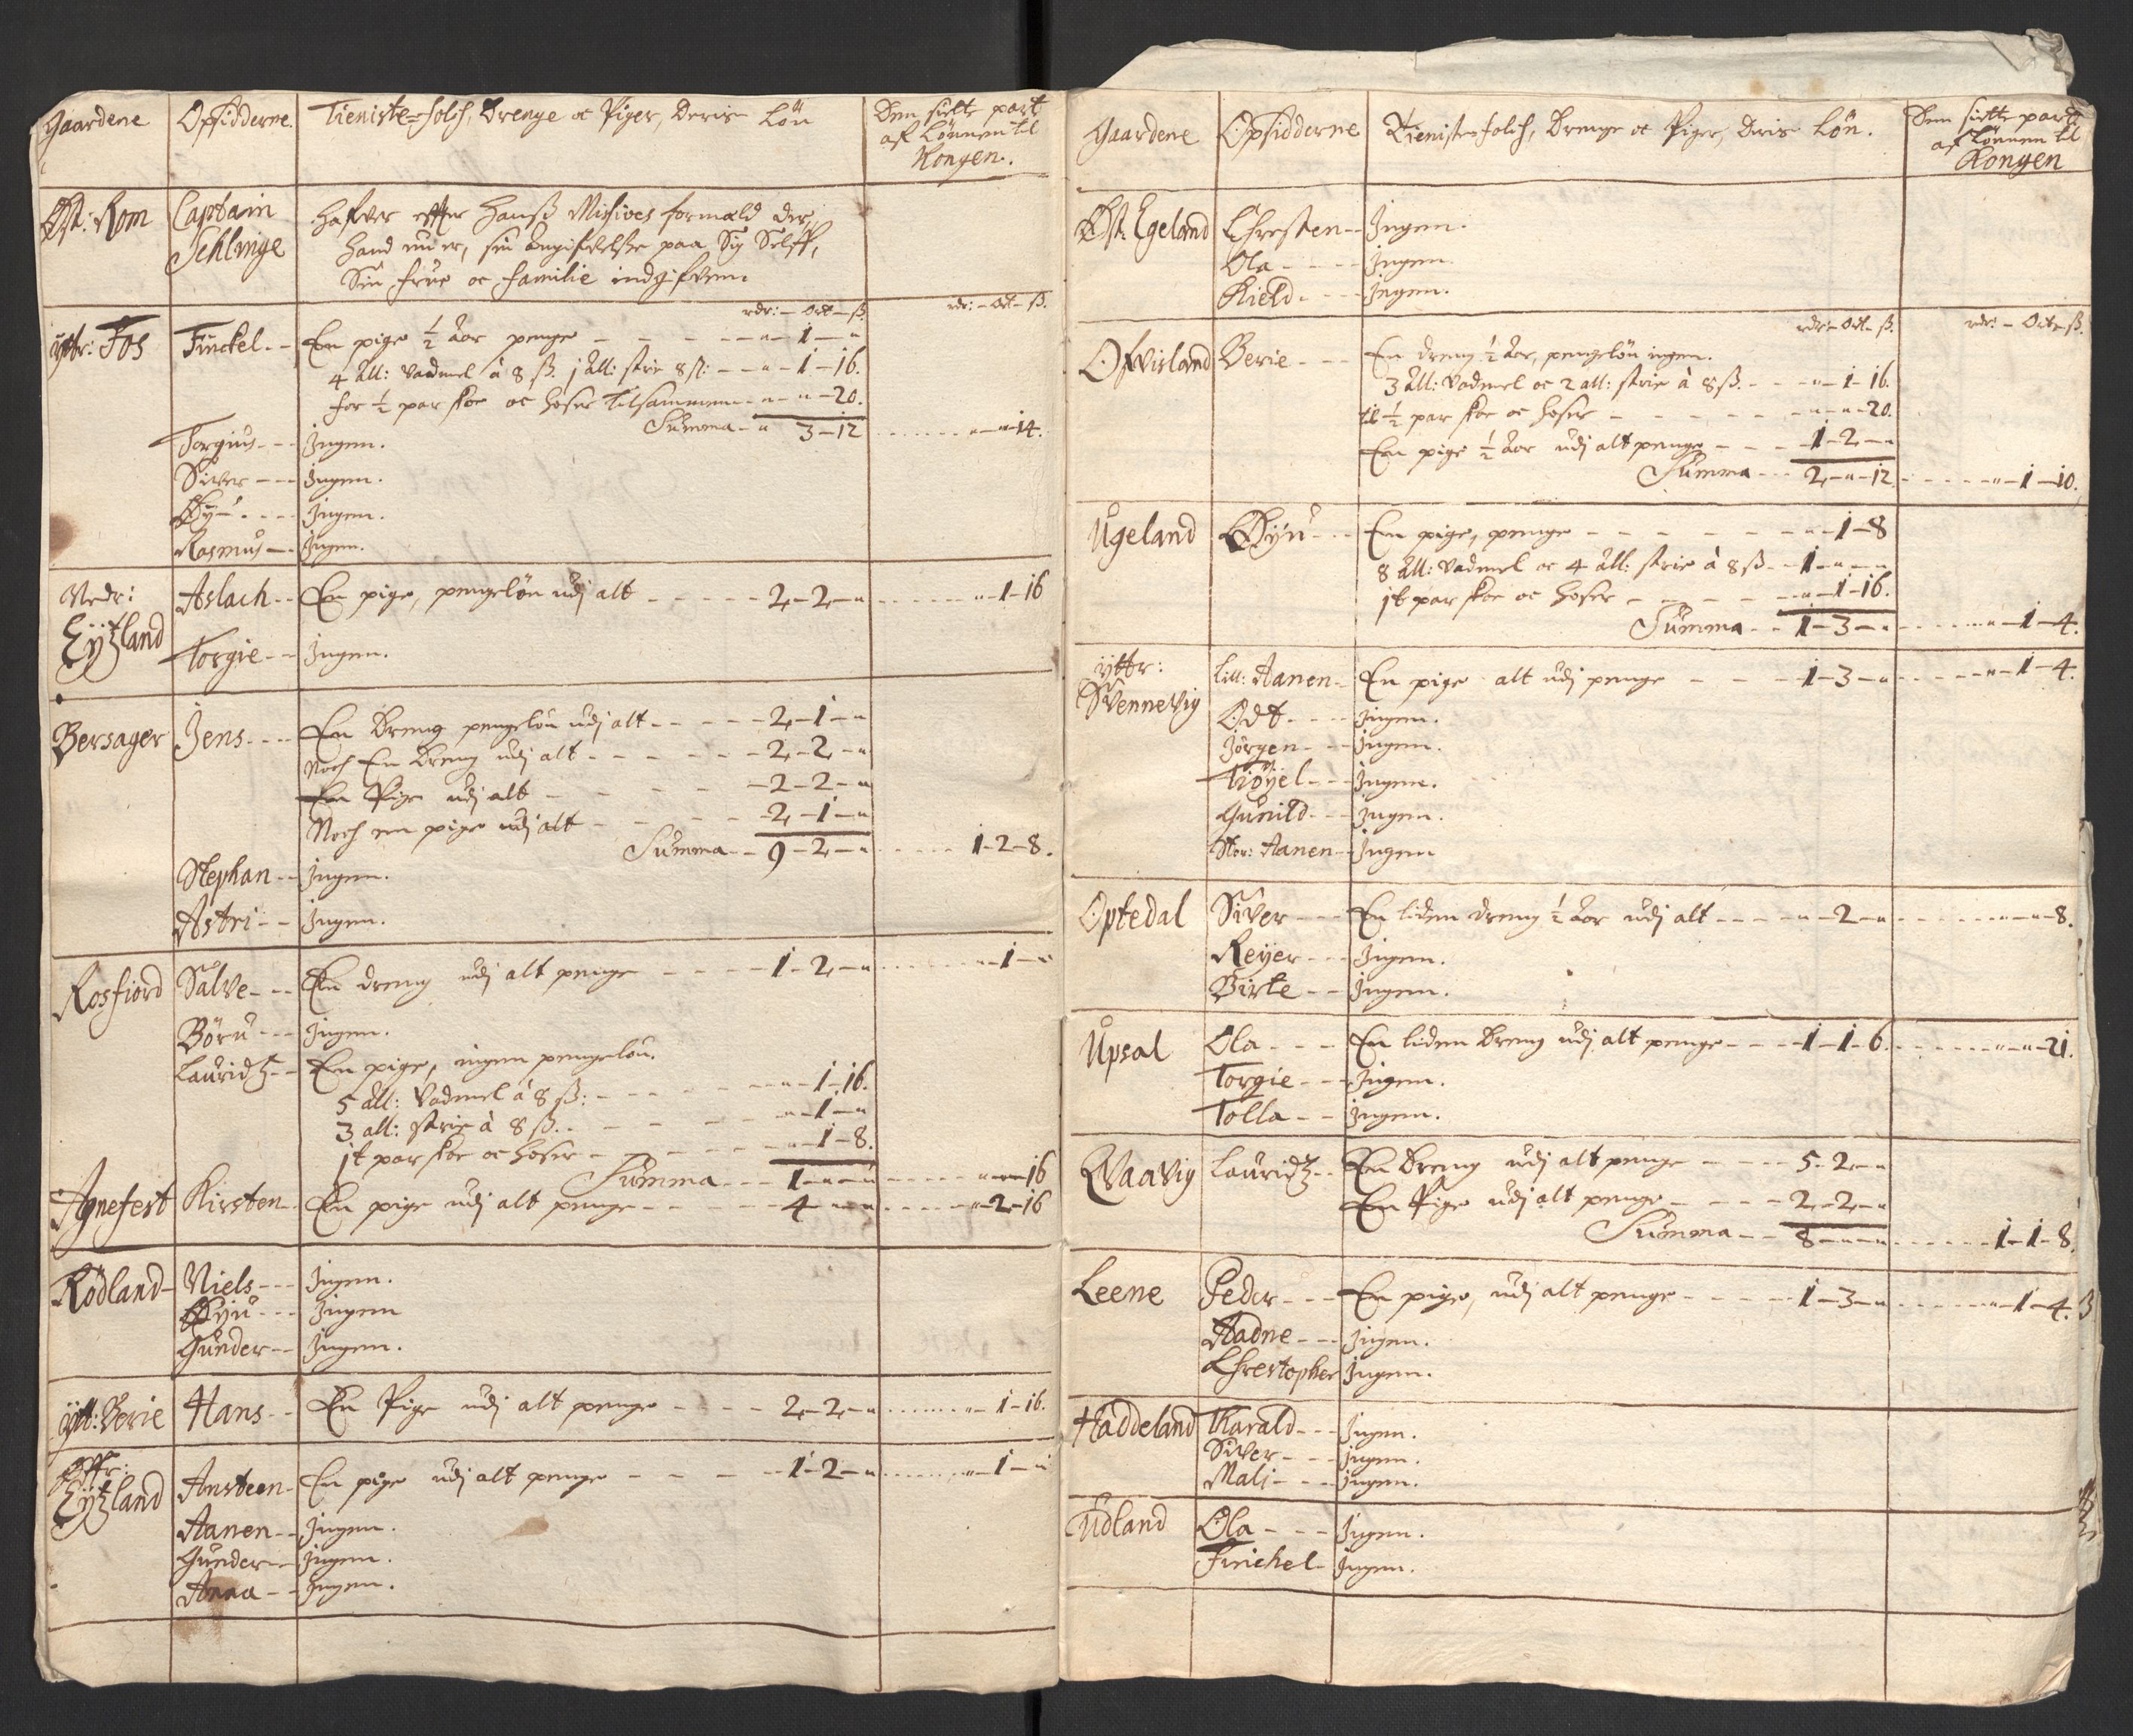 Gaardene Opsidderne. Tieniste-folch, Drenge oc Piger, Deris Lön Den siette part
af Lönnen til
Kongen.
Øst: Rom Captain hafver effter hans Missives formeld der
Schlinge hand nu er, sin angifvelsse paa Sig Selff,
Sin frue oc familie indgifven.
rdr: - Ort - ß. rdr: - Ort - ß.
ytter: Fos Finckel - - En pige ½ Aar penge - - - - " - 1 - "
4 All: vadmel à 8 ß. 1 All: strie 8 ß: - - " - 1 - 16.
for ½ par skoe oc hoser tilsammen - - " - " - 20.
Summa - " 3 - 12 . . . . . " - " - 14.
Torgius - - Ingen.
Siver - - - Ingen.
Øyu - - - Ingen.
Rasmus - - Ingen.
Nedr: Aslach - - En pige, pengelön udj alt - - - - - 2 - 2 - " . . . . . " - 1 - 16
Eÿtzland Torgie - - Ingen.
Bersager Jens - - - En Dreng pengelön udj alt - - - - - 2 - 1 - "
Noch En Dreng udj alt - - - - - 2 - 2 - "
En Pige udj alt - - - - - 2 - 2 - "
Noch en pige udj alt - - - - - 2 - 1 - "
Summa - - 9 - 2 - " . . . . . 1 - 2 - 8.
Stephan - - Ingen.
Astri - - Ingen.
Rosfiord Salve - - En dreng udj alt penge - - - - 1 - 2 - " . . . . . " - 1 - "
Böru - - - Ingen.
Lauridtz - - En pige, ingen pengelön.
5 All: Vadmel à 8 ß: - - - - " - 1 - 16.
3 all: strie à 8 ß. - - - - " - 1 - "
1t par skoe oc hoser - - - - " - 1 - 8.
Summa - - - 1 - " - " . . . . . " - " - 16
Agnefest Kirsten - - En pige udj alt penge - - - - - 4 - " - " . . . . . " - 2 - 16
Rödland - Niels - - - Ingen.
Øyu - - - Ingen
Gunder - - Ingen.
ÿtt: Berie Hans - - En Pige udj alt penge - - - - 2 - 2 - " . . . . . " - 1 - 16.
Øffr:
Eÿtzland Ansteen - En pige udj alt penge - - - - - 1 - 2 - " . . . . . " - 1 - "
Aanen - - Ingen.
Gunder - - Ingen.
Anna - - Ingen.
Gaardene Opsidderne Tieniste folch, Drenge oc Piger, Deris Lön. Den siette part
af Lönnen til
Kongen
Øst: Egeland Chresten - - Ingen.
Ola - - - - Ingen.
Kield - - - Ingen.
rdr: - Ort - ß. rdr: - Ort - ß.
Ofvisland Berie - - - En dreng ½ Aar, pengelön ingen.
3 All: Vadmel oc 2 all: strie à 8 ß. - - - " - 1 - 16.
til ½ par skoe oc hoser - - - - - - " - " - 20.
En pige ½ Aar udj alt penge - - - 1 - 2 - "
Summa - - - 2 - " - 12 . . . . . " - 1 - 10.
Ugeland Øyu - - - En pige, penge - - - - - - " - 1 - 8
8 All: Vadmel oc 4 All: strie à 8 ß - - 1 - " - "
1t par skoe oc hoser - - - - - " - 1 - 16.
Summa - - 1 - 3 - " . . . . . " - 1 - 4.
ÿtter: Lill: Aanen - En pige alt udj penge - - - 1 - 3 - " . . . . . " - 1 - 4.
Svennevig Odt - - - Ingen.
Jörgen - - Ingen.
Tiöÿel - - Ingen.
Gunild - - Ingen.
Stor: Aanen - Ingen
Optedal Siver - - - En liden dreng ½ Aar udj alt - - - - " - 2 - " . . . . . " - " - 8.
Reyer - - - Ingen.
Birte - - Ingen.
Upsal Ola - - - En liden Dreng udj alt penge - - - - 1 - 1 - 6. . . . . . " - " - 21.
Torgie - - - Ingen.
Tolla - - Ingen.
Qvaavig Lauridtz - - En Dreng udj alt penge - - - - 5 - 2 - "
En Pige udj alt penge - - - - 2 - 2 - "
Summa - - 8 - " - " . . . . . 1 - 1 - 8.
Leene Peder - - - En pige, udj alt penge - - - - - 1 - 3 - " . . . . . " - 1 - 4.
Aadne - - - Ingen.
Chrestopher Ingen.
Haddeland Harald - - - Ingen.
Siver - - - Ingen.
Mali - - - Ingen.
Udland Ola - - - Ingen.
Finchel - Ingen.